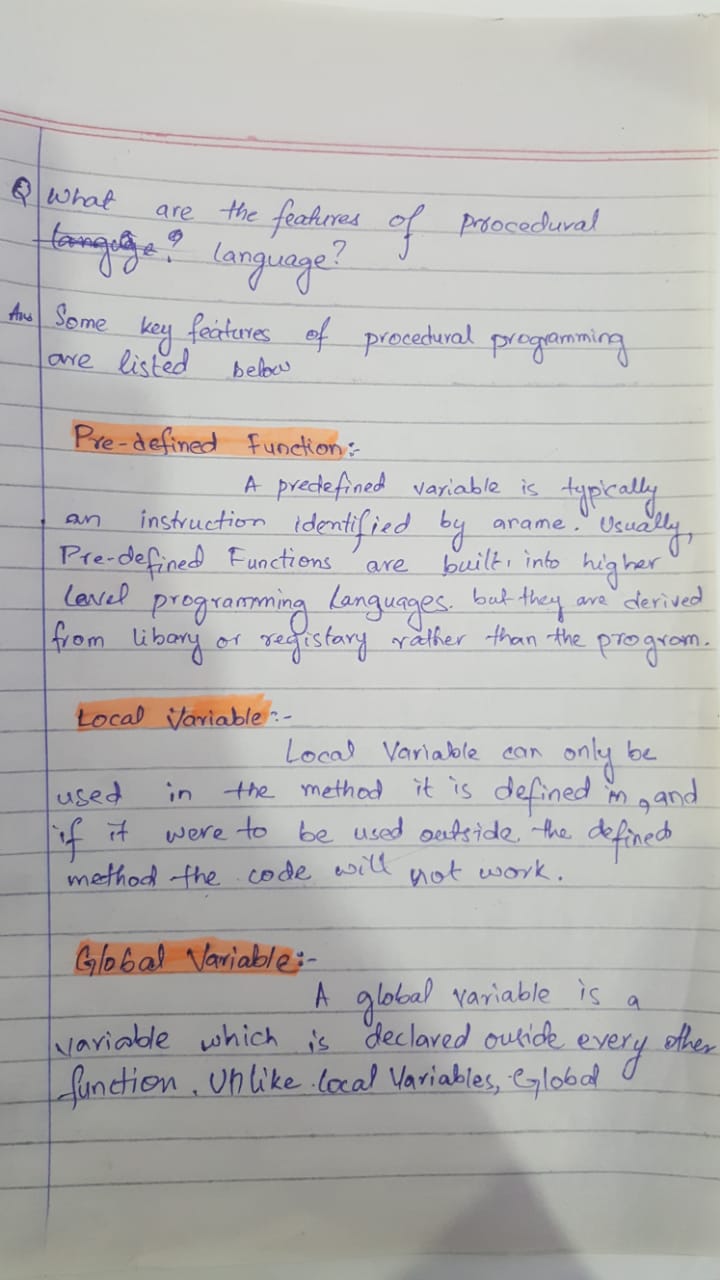 Q What are the features of procedural
langage? language?
Ans Some key features of procedural programming
are listed below
Pre-defined Function:-
A predefined variable is typically
an instruction identified by aname. Usually,
Pre-defined Functions are built, into higher
Level programming Languages. but they are derived
from libary or registary rather than the program.
Local Variable:-
Local Variable can only be
used in the method it is defined in, and
if it were to be used outside, the defined
method the code will not work.
Global Variable:-
A global variable is a
variable which is declared ouside every other
function. Unlike local Variables, Global